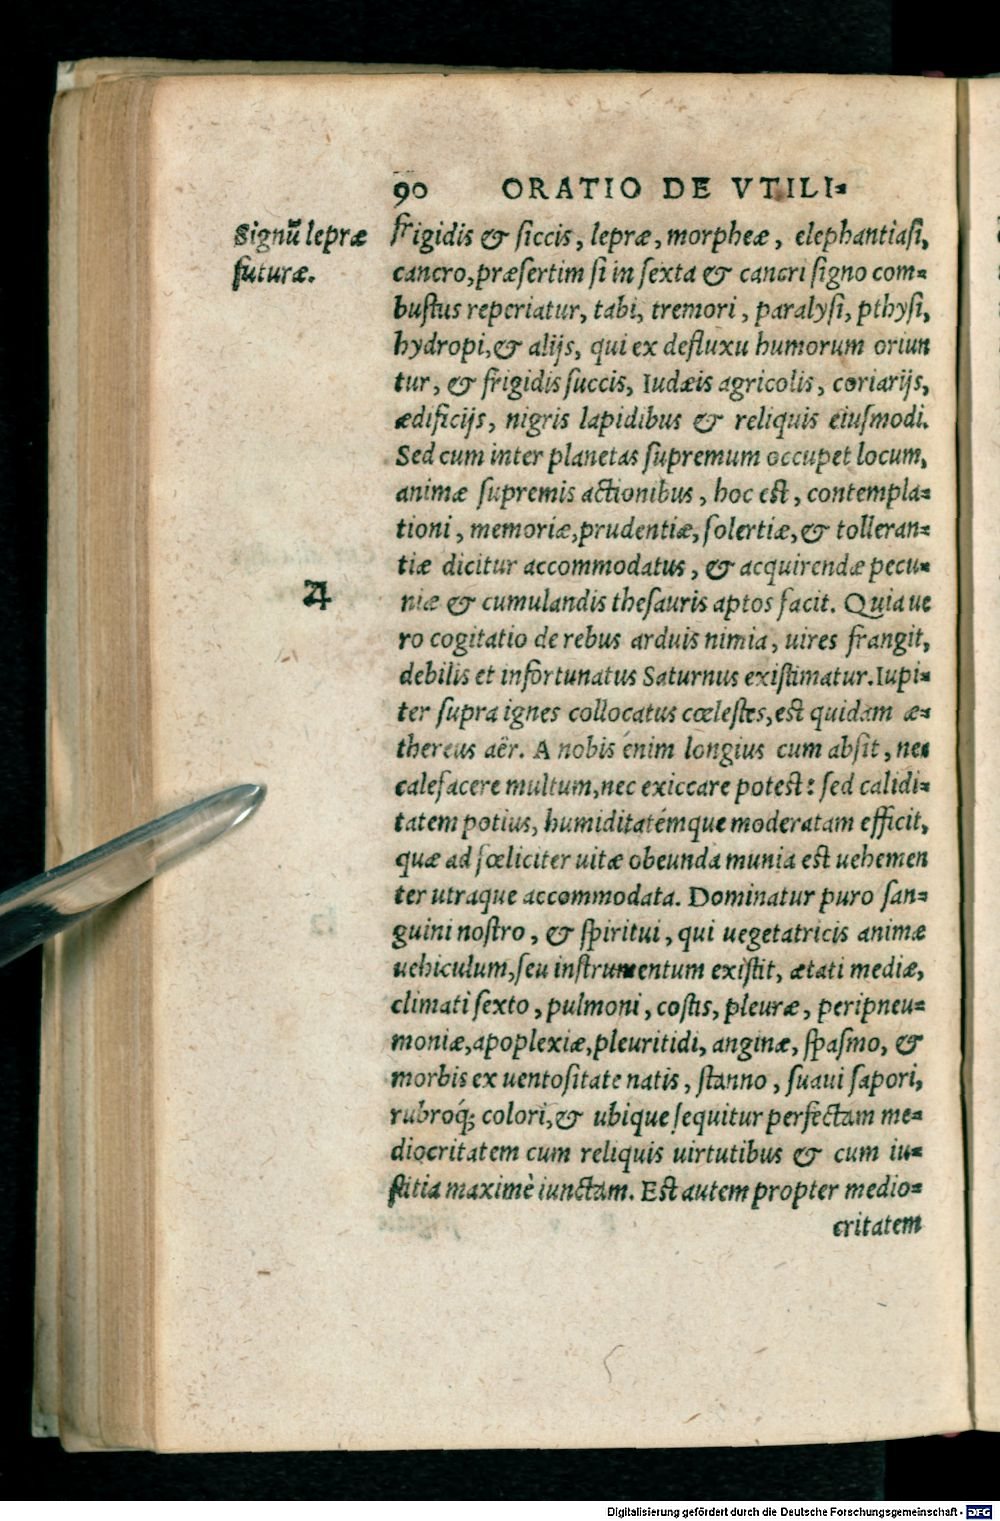 90 ORATIO DE VTILI-
Signū lepræ
futuræ.
frigidis & siccis, lepræ, morpheæ, elephantiasi,
cancro, præsertim si in sexta & cancri signo com-
bustus reperiatur, tabi, tremori, paralysi, pthysi,
hydropi, & alijs, qui ex defluxu humorum oriun
tur, & frigidis succis, Iudæis agricolis, coriarijs,
ædificijs, nigris lapidibus & reliquis eiusmodi.
Sed cum inter planetas supremum occupet locum,
animæ supremis actionibus, hoc est, contempla-
tioni, memoriæ, prudentiæ, solertiæ, & tolleran-
tiæ dicitur accommodatus, & acquirendæ pecu-
♃
niæ & cumulandis thesauris aptos facit. Quia ue
ro cogitatio de rebus arduis nimia, uires frangit,
debilis et infortunatus Saturnus existimatur. Iupi-
ter supra ignes collocatus cœlestes, est quidam æ-
thereus aër. A nobis énim longius cum absit, nec
calefacere multum, nec exiccare potest: sed calidi-
tatem potius, humiditatémque moderatam efficit,
quæ ad fœliciter uitæ obeunda munia est uehemen
ter utraque accommodata. Dominatur puro san-
guini nostro, & spiritui, qui uegetatricis animæ
uehiculum, seu instrumentum existit, ætati mediæ,
climati sexto, pulmoni, costis, pleuræ, peripneu-
moniæ, apoplexiæ, pleuritidi, anginæ, spasmo, &
morbis ex uentositate natis, stanno, suaui sapori,
rubroq́; colori, & ubique sequitur perfectam me-
diocritatem cum reliquis uirtutibus & cum iu-
stitia maximè iunctam. Est autem propter medio-
critatem
Digitalisierung gefördert durch die Deutsche Forschungsgemeinschaft - DFG